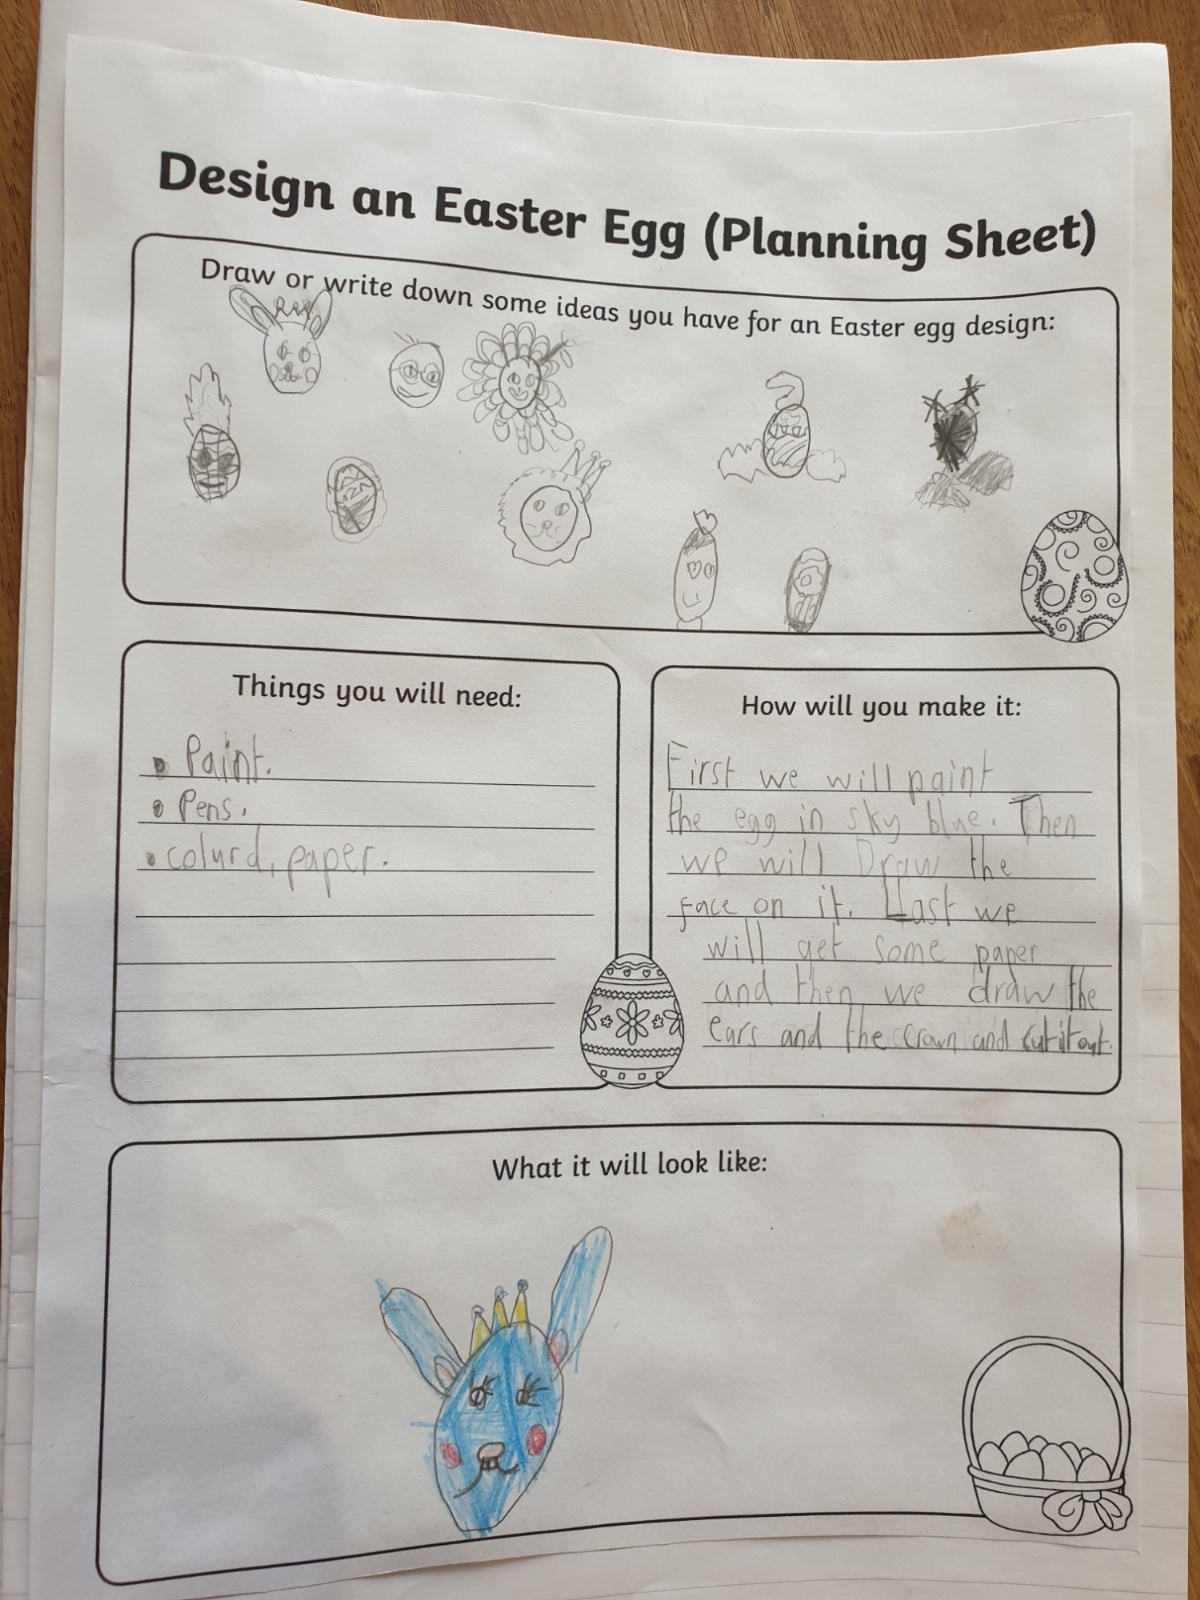 Design an Easter Egg (Planning Sheet)
Draw or write down some ideas you have for an Easter egg design:
Things you will need:
• Paint.
• Pens.
• colurd, paper.
How will you make it:
First we will paint
the egg in sky blue. Then
we will Draw the
face on it. Last we
will get some paper
and then we draw the
ears and the crown and cut it out.
What it will look like: